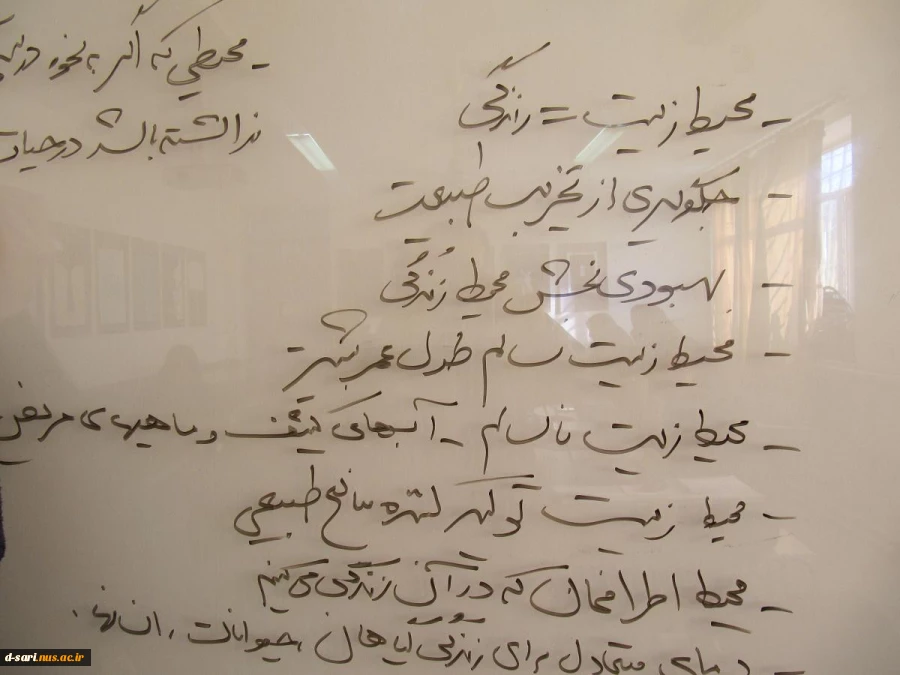 - محیط زیست = زندگی
- جلوگیری از تخریب طبیعت
- بهبودی بخش محیط زندگی
- محیط زیست سالم طول عمر بیشتر
- محیط زیست ناسالم - آبهای کثیف و ماهیهای مریض
- محیط زیست تولید کننده منابع طبیعی
- محیط اطرافمان که در آن زندگی می کنیم
- دمای متعادل برای زندگی گیاهان، حیوانات، انسانها.
- محیطی که اگر به نحوه
نداشته باشد در حیات
d-sari.nus.ac.ir